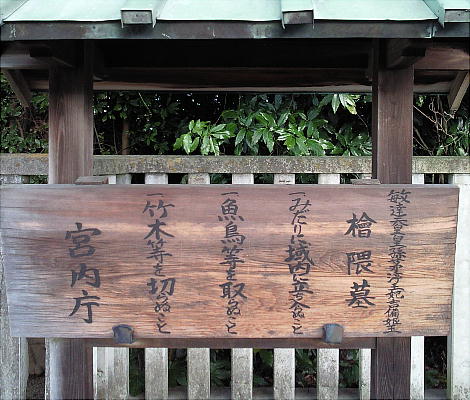 敏達天皇皇孫茅渟王妃吉備姫王
檜隈墓
一みだりに域内に立ち入らぬこと
一魚鳥等を取らぬこと
一竹木等を切らぬこと
宮内庁